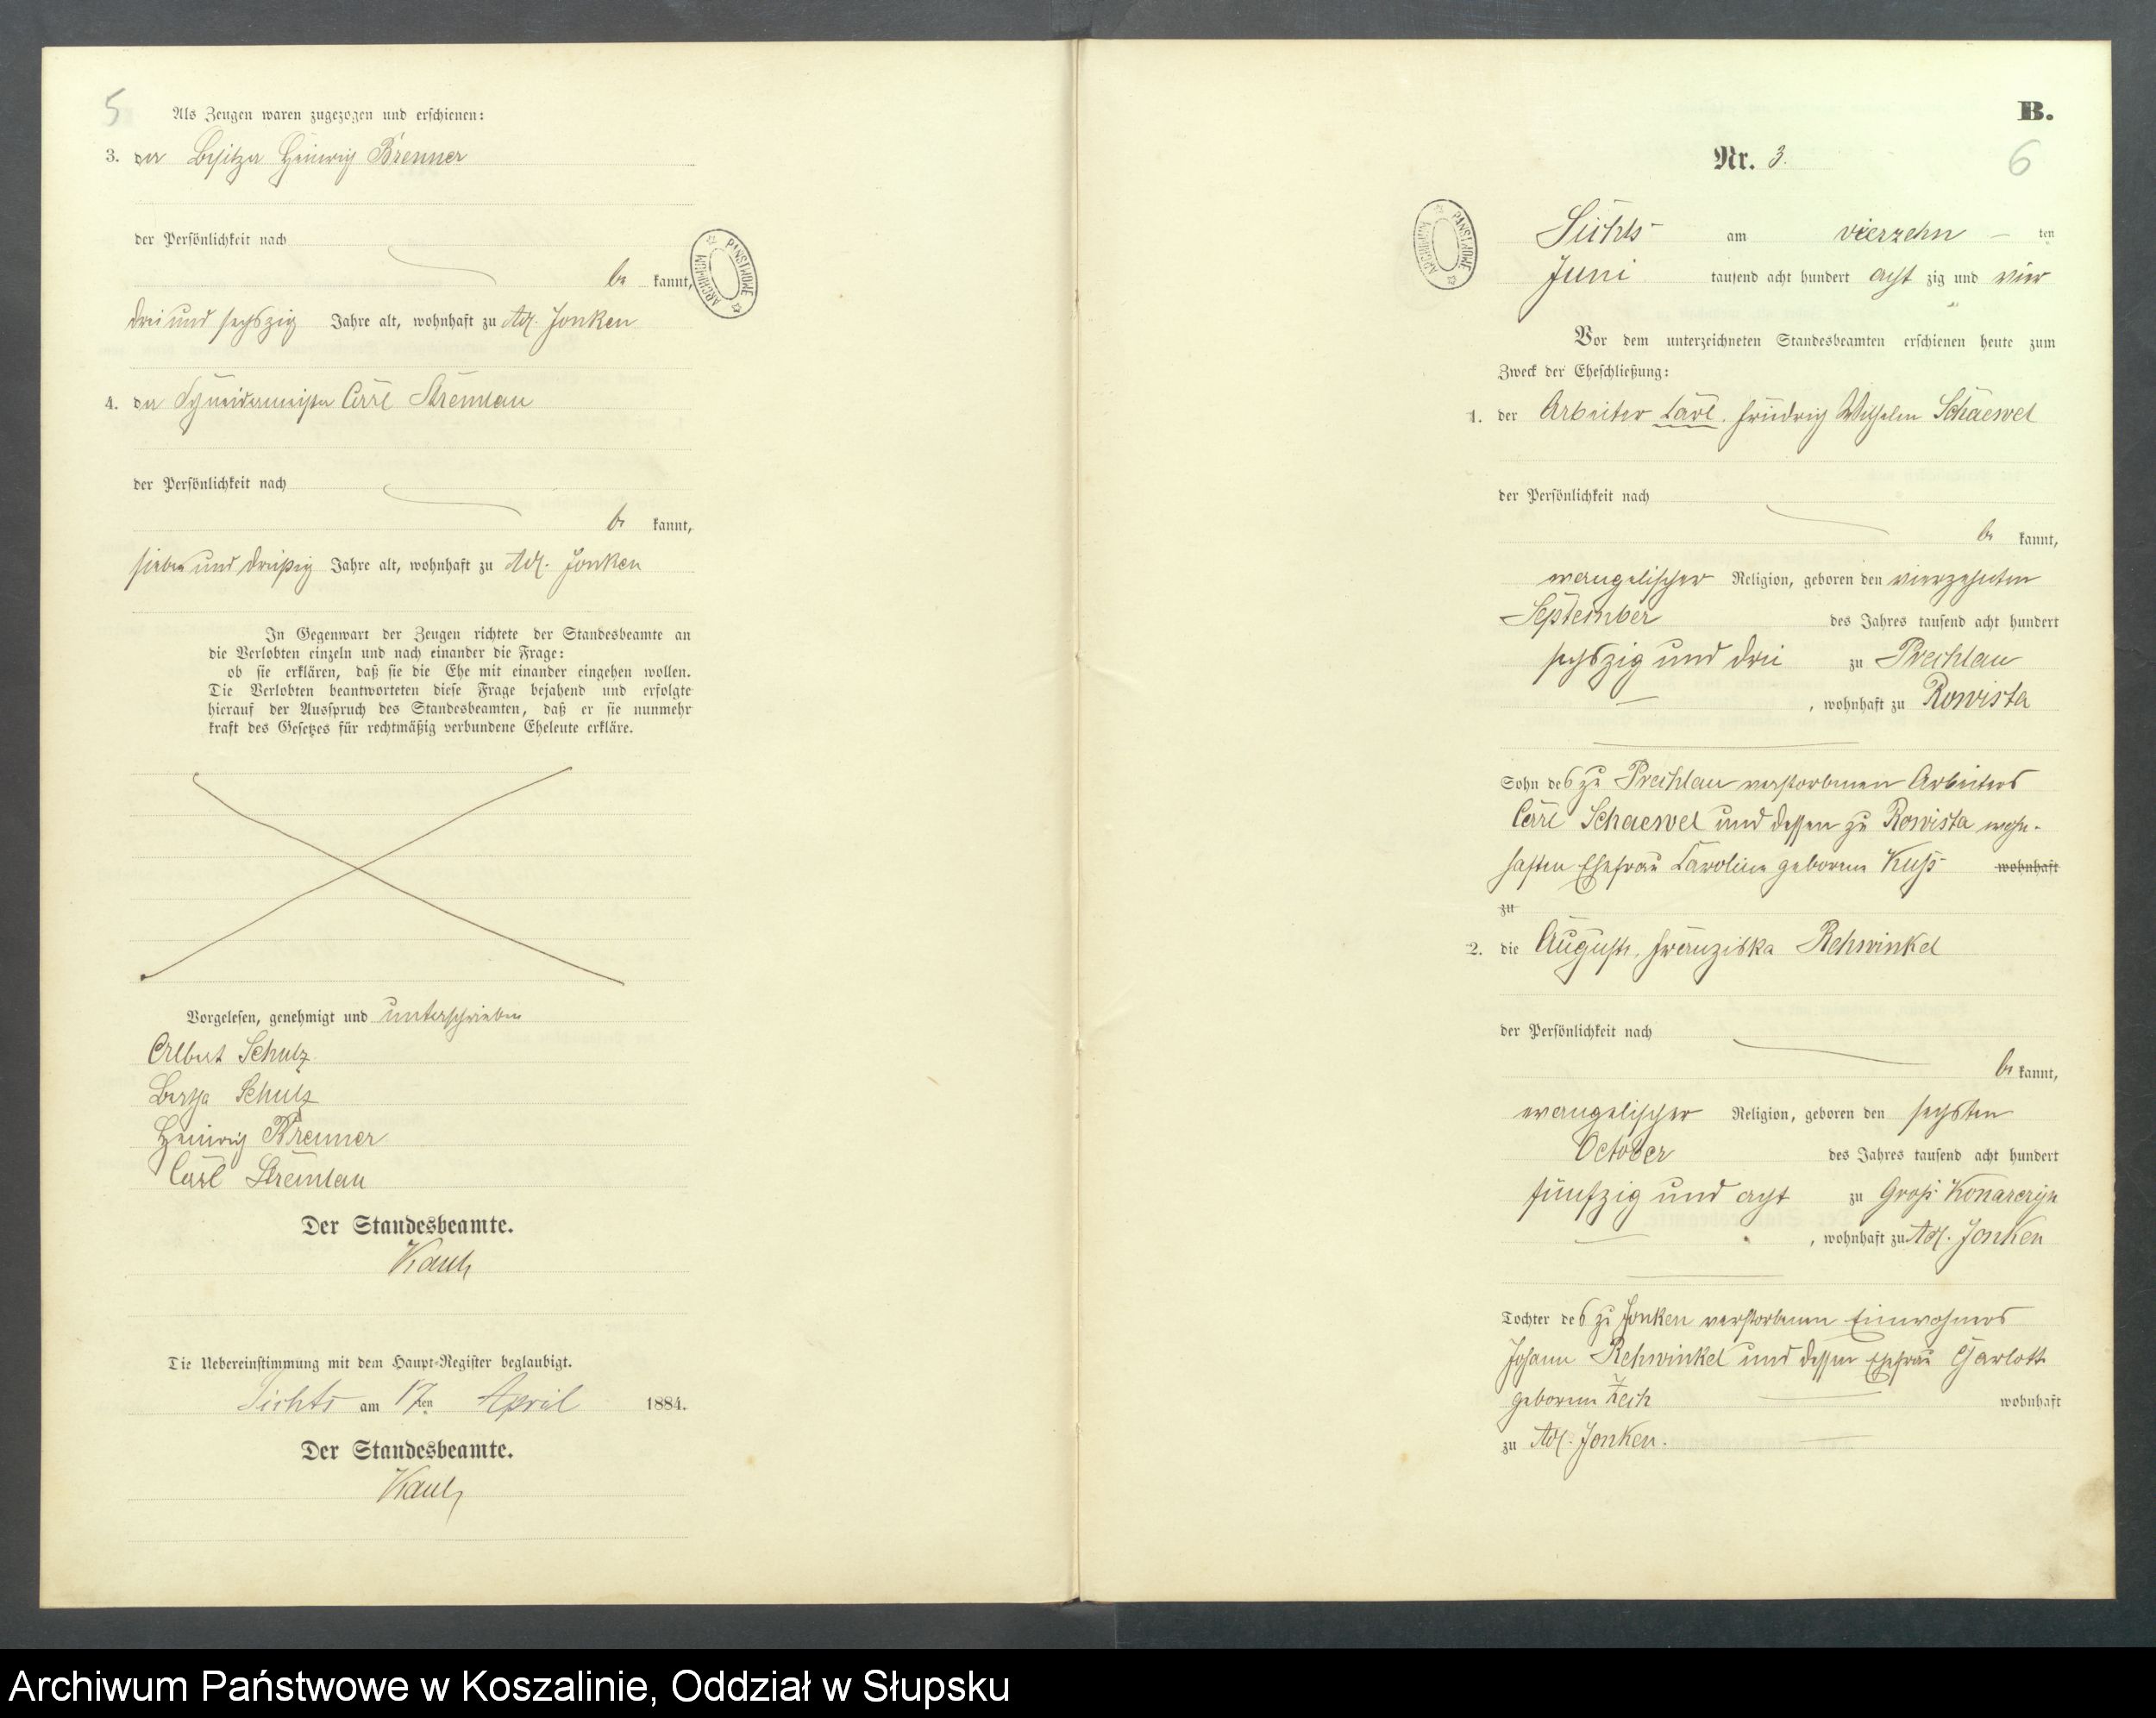 5
Als Zeugen waren zugezogen und erschienen:
3. der Besitzer Heinrich Brenner
der Persönlichkeit nach
be kannt,
drei und sechszig Jahre alt, wohnhaft zu Adl. Jonken
4. der Schneidermeister Carl Stremlau
der Persönlichkeit nach
be kannt,
sieben und dreißig Jahre alt, wohnhaft zu Adl. Jonken
In Gegenwart der Zeugen richtete der Standesbeamte an
die Verlobten einzeln und nach einander die Frage:
ob sie erklären, daß sie die Ehe mit einander eingehen wollen.
Die Verlobten beantworteten diese Frage bejahend und erfolgte
hierauf der Ausspruch des Standesbeamten, daß er sie nunmehr
kraft des Gesetzes für rechtmäßig verbundene Eheleute erkläre.
Vorgelesen, genehmigt und unterschrieben
Albert Schulz
Bertha Schulz
Heinrich Brenner
Carl Stremlau
Der Standesbeamte.
Die Uebereinstimmung mit dem Haupt-Register beglaubigt.
am 17ten April 1884.
Der Standesbeamte.
ARCHIWUM PAŃSTWOWE
B.
Nr. 3.
6
ARCHIWUM PAŃSTWOWE
am vierzehn ten
Juni tausend acht hundert acht zig und vier
Vor dem unterzeichneten Standesbeamten erschienen heute zum
Zweck der Eheschließung:
1. der Arbeiter Carl Friedrich Wilhelm Schaewel
der Persönlichkeit nach
be kannt,
evangelischer Religion, geboren den vierzehnten
September des Jahres tausend acht hundert
sechszig und drei zu Prechlau
, wohnhaft zu Rowista
Sohn des zu Prechlau verstorbenen Arbeiters
Carl Schaewel und dessen zu Rowista wohn-
haften Ehefrau Caroline geborene Kuß wohnhaft
zu
2. die Auguste Franziska Rehwinkel
der Persönlichkeit nach
be kannt,
evangelischer Religion, geboren den sechsten
October des Jahres tausend acht hundert
fünfzig und acht zu Groß Konarczyn
, wohnhaft zu Adl. Jonken
Tochter des zu Jonken verstorbenen Einwohners
Johann Rehwinkel und dessen Ehefrau Charlotte
geborene Zech wohnhaft
zu Adl. Jonken.
Archiwum Państwowe w Koszalinie, Oddział w Słupsku